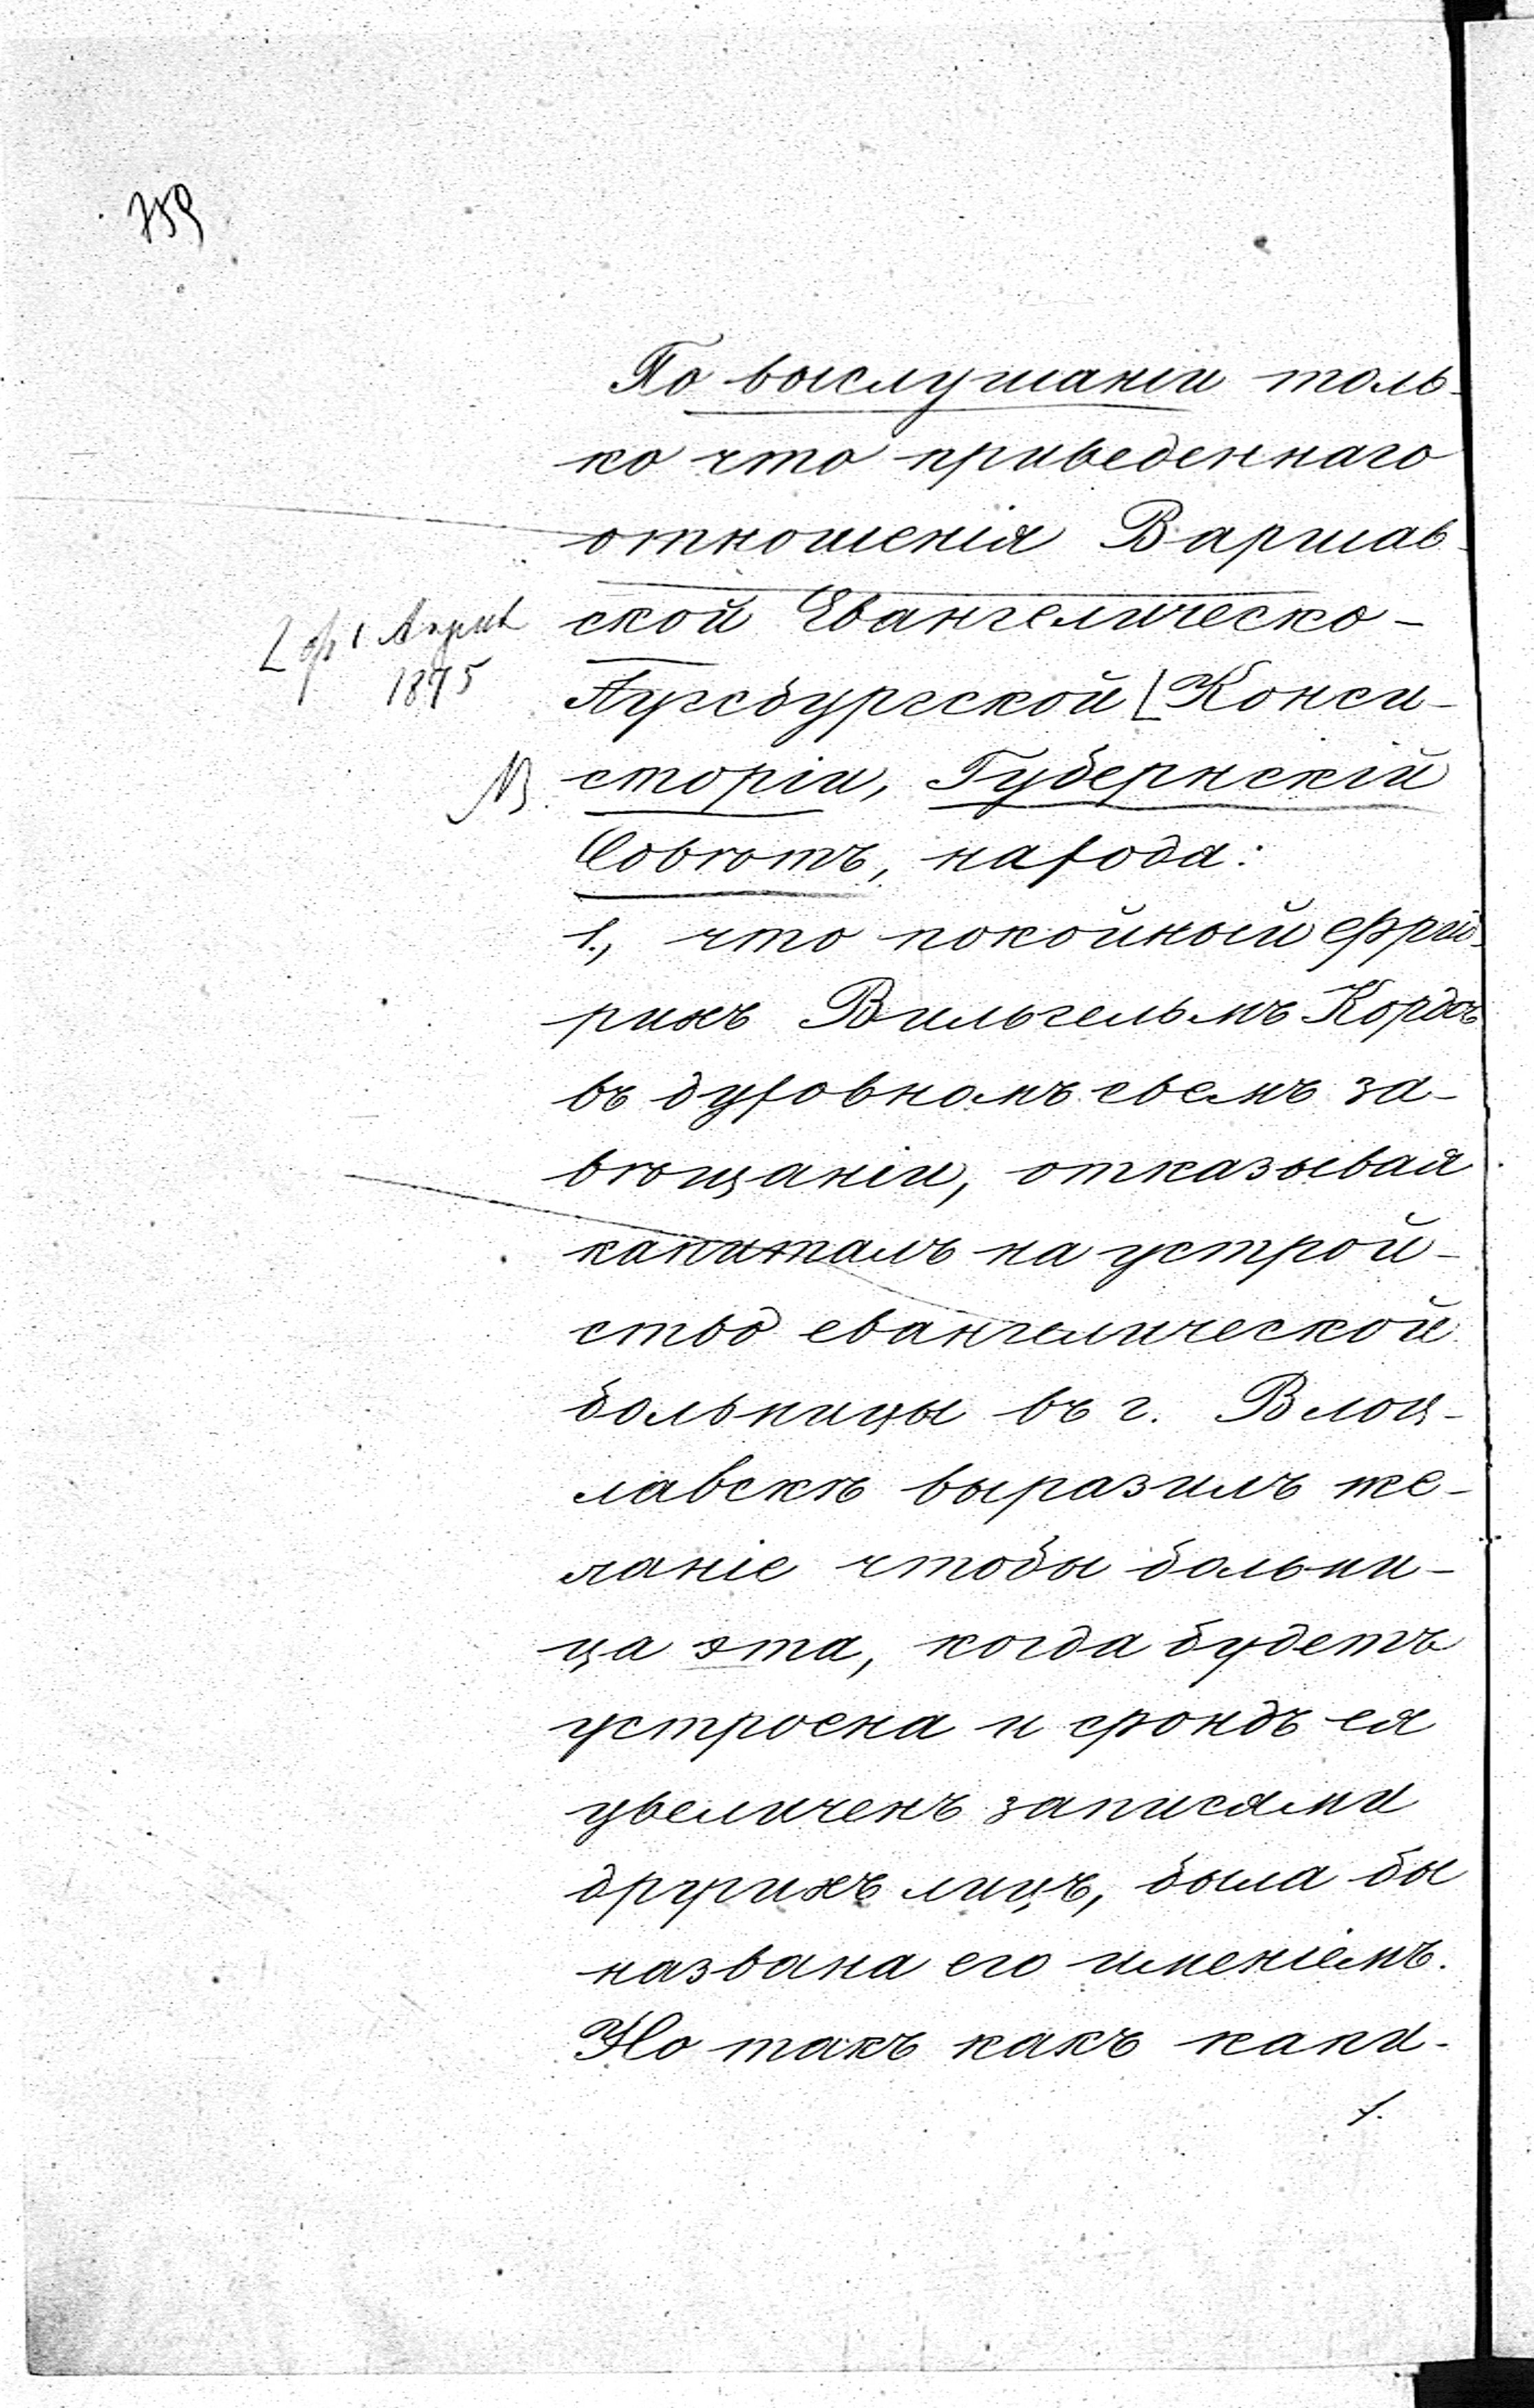 759
По выслушаніи толь-
ко что приведеннаго
отношенія Варшав-
ской Евангелическо-
1875
Аугсбургской [Конси-
сторіи, Губернскій
Совѣтъ, находя:
1., что покойный Фрид-
рихъ Вильгельмъ
въ духовномъ своемъ за-
вѣщаніи, отказывая
капиталъ на устрой-
ство евангелической
больницы въ г. Влоц-
лавскѣ выразилъ же-
ланіе чтобы больни-
ца эта, когда будетъ
устроена и фондъ ея
увеличенъ записями
другихъ лицъ, была бы
названа его имененіемъ.
Но такъ какъ капи-